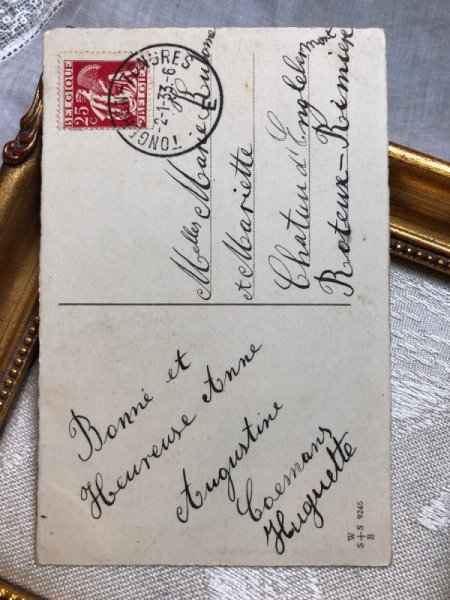 BELGIQUE
25 c
BELGIË
TONGEREN TONGRES
-2-1-33-6
E
Melles Marie
et Mariette
Chatau d'Englebermont
Roteux - Rimière
Bonne et
Heureuse Anne
Augustine
Coemans
Huguette
W S S B 9245